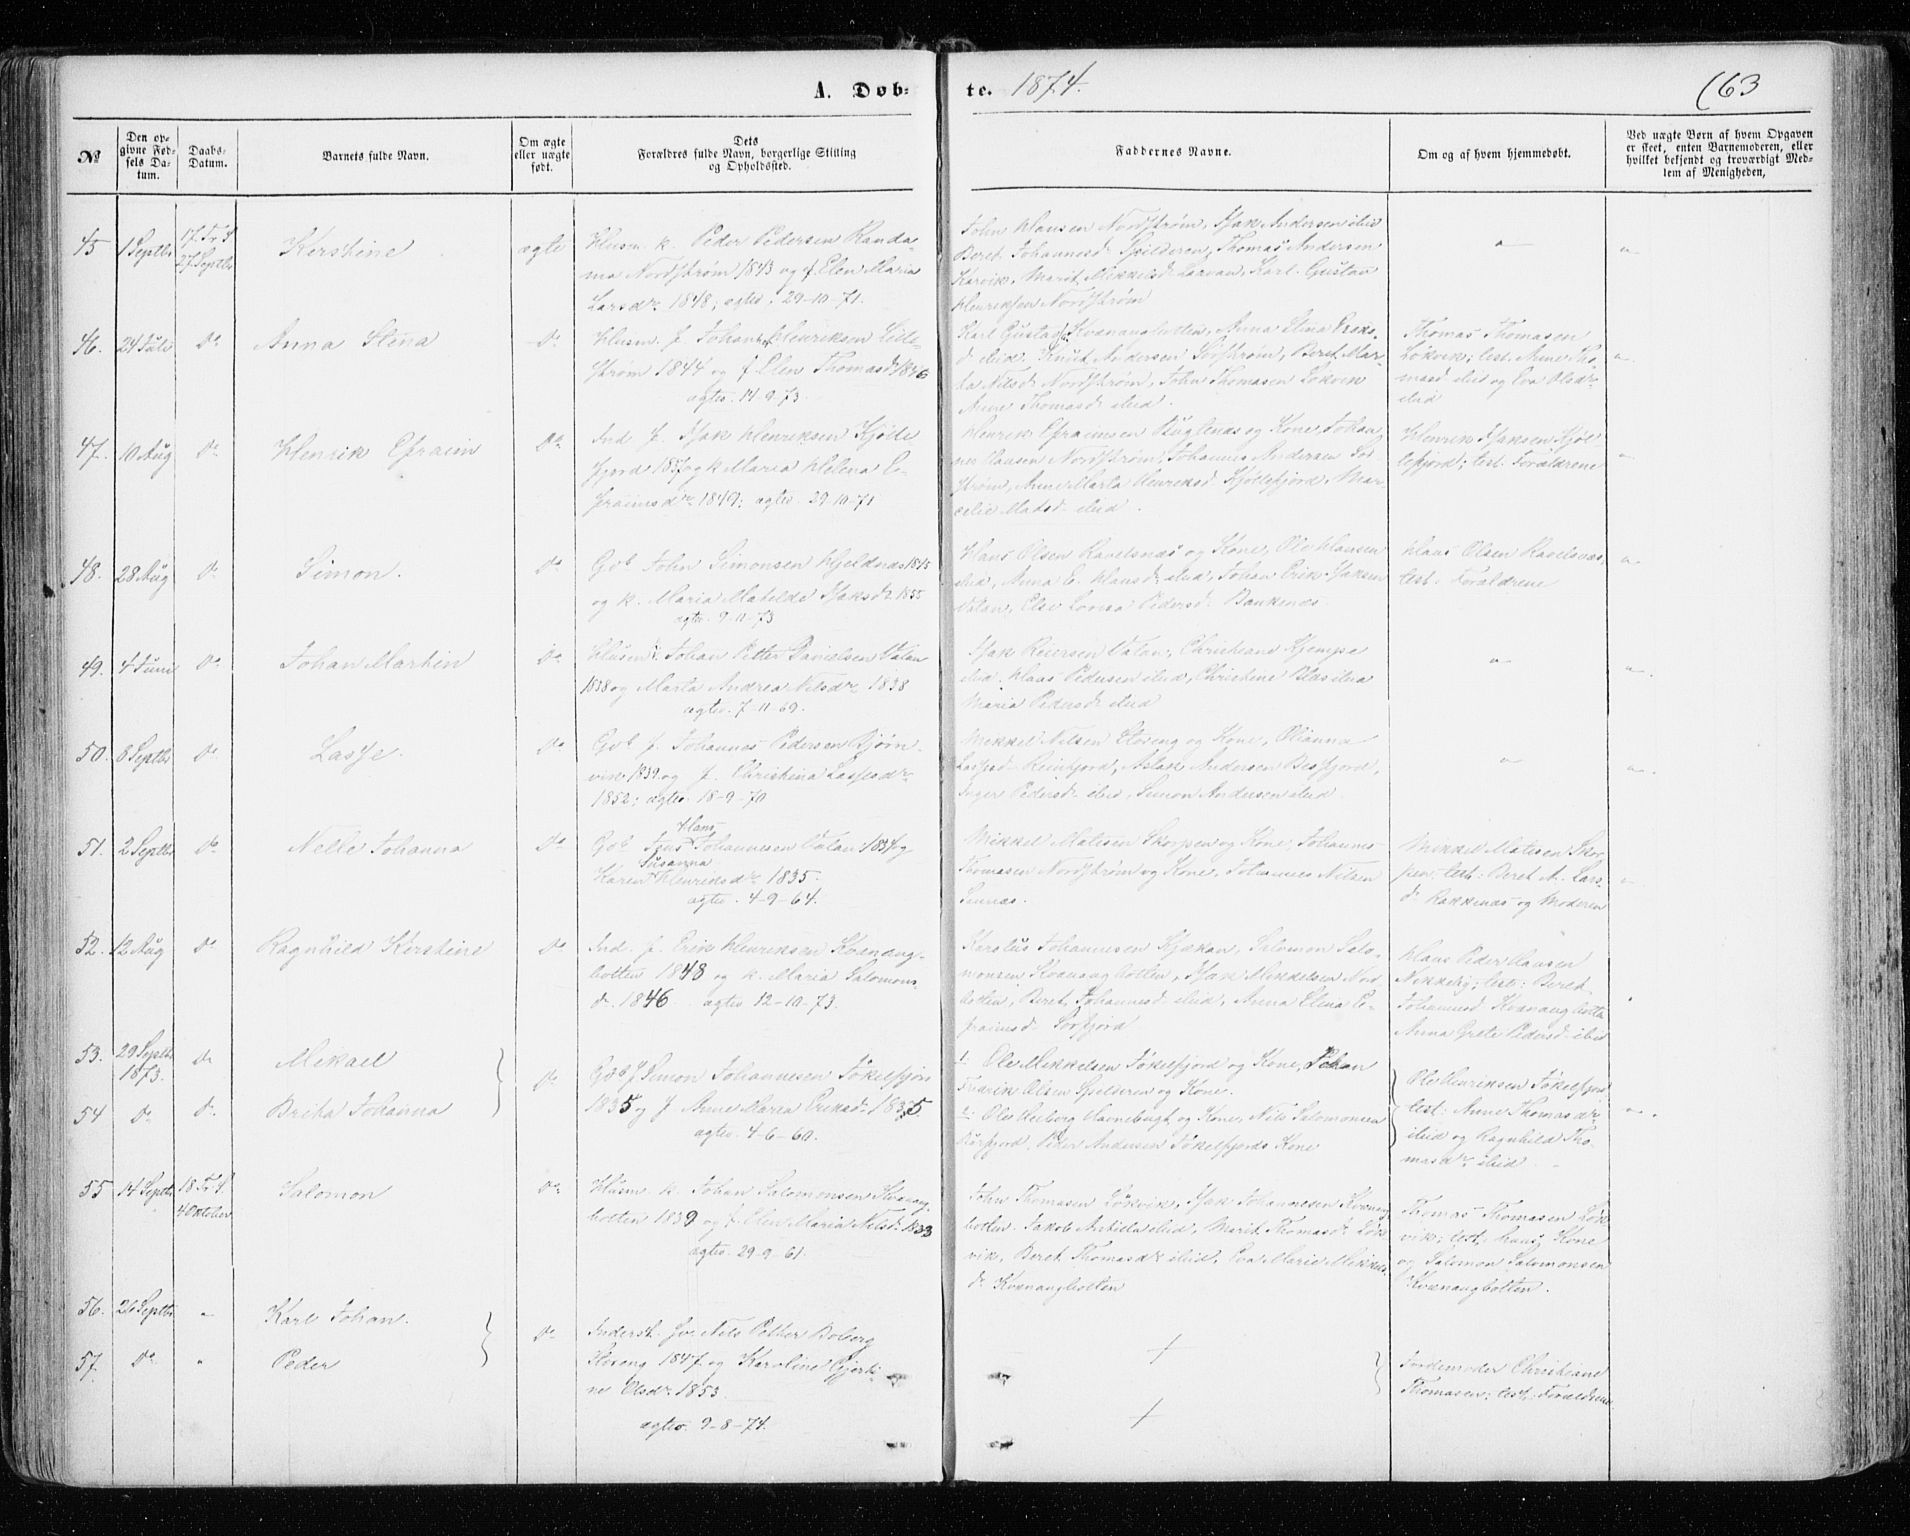 A. Døb-
te. 1874.
(63
№
Den op-
givne Fød-
sels Da-
tum.
Daabs-
Datum.
Barnets fulde Navn.
Om ægte
eller uægte
født.
Dets
Forældres fulde Navn, borgerlige Stilling
og Opholdssted.
Faddernes Navne.
Om og af hvem hjemmedøbt.
Ved uægte Børn af hvem Opgaven
er skeet, enten Barnemoderen, eller
hvilket bekjendt og troværdigt Med-
lem af Menigheden,
45
1 Septbr
17. Tr. S.
27 Septbr
Kerstine
ægte
Husm. k. Peder Pedersen Randa-
ma Nordstrøm 1843 og f. Elen Maria
Larsdr 1848; ægtev. 29-10-71.
John Hansen Nordstrøm, Isak Andersen ibid
Beret Johannesd Spilderen, Thomas Andersen
Karvik, Marit Mikkelsd Larvan, Karl Gustav
Henriksen Nordstrøm
46.
24 Juli
Do
Anna Stina
Do
Husm. f. Johan Henriksen Lille-
strøm 1844 og f. Elen Thomasd 1846
ægtev. 14-9-73.
Karl Gustaf Kvænangbotten, Anna Stina Eriks-
d ibid. Knut Andersen Sørstrøm, Beret Mar-
ta Nilsd Nordstrøm, John Thomasen Løkvik
Anne Thomasd ibid.
Thomas Thomasen
Løkvik; test. Anne Tho-
masd ibid og Eva Olsdr
ibid
47.
10 Aug
Do
Henrik Efraim
Do
Ind f. Isak Henriksen Kjølle-
fjord 1857 og k Maria Helena E-
fraimsdr 1849; ægtev 29-10-71
Henrik Efraimsen Buglenæs og Kone, Johan-
nes Hansen Nordstrøm, Johannes Andersen Sør-
strøm, Anne Marta Henriksd Kjøllefjord, Mar-
celie Matsd ibid.
Henrik Isaksen Kjøl-
lefjord; test. Forældrene
48.
28 Aug
Do
Simon.
Do
Gdb John Simonsen Hjeldnæs 1845
og k. Maria Mathilde Isaksd. 1855
ægtev. 9-11-73
Hans Olsen Ravelsnæs og Kone, Ole Hansen
ibid, Anna E. Hansd ibid, Johan Erik Isaksen
Valan, Else Lovisa Pedersd Bankenæs.
Hans Olsen Ravelsnæs,
test. Forældrene
49.
4 Juni
Do
Johan Martin
Do
Husm. Johan Petter Danielsen Valan
1838 og Marta Andrea Nilsdr 1838
ægtev. 7-11-69.
Isak Reiersen Valan, Christiane Kjempe
ibid. Hans Pedersen ibid, Christine Blas ibid
Maria Pedersd ibid
50.
8 Septbr
Do
Lasse.
Do
Gdb f. Johannes Pedersen Bjørn-
vik 1839 og f. Christina Lassesdr
1852; ægtev. 18-9-70
Mikkel Nilsen Storeng og Kone, Olianna
Lassesd Reinfjord, Aslak Andersen Besfjord,
Inger Pedersd ibid, Simon Andersen ibid.
51.
2 Septbr
Do
Nelle Johanna
Do
Hans
Gdb Jens Johannesen Valan 1837 og
Susanna
Karen Henriksdr 1835.
ægtev. 4-9-64.
Mikkel Matisen Skorpen og Kone, Johannes
Thomasen Nordstrøm og Kone, Johannes Nilsen
Sennæs.
Mikkel Matisen Skor-
pen, test: Beret A. Lars-
d. Rakkenæs og Moderen
52.
12 Aug
Do
Ragnhild Kerstine
Do
Ind. f. Erik Henriksen Kvænang-
botten 1848 og k. Maria Salomons-
d. 1846 ægtev 12-10-73.
Karolus Johannesen Kjækan, Salomon Salo-
monsen Kvænangbotten, Isak Mikkelsen Nord-
botten, Beret Johannesd ibid, Anna Elena E-
fraimsd Sørfjord
Hans Peder Hansen
Nokkely; test: Beret
Johannesd Kvænangbotten
Anna Grete Pedersd ibid
53.
29 Septbr
1873.
Do
Mikael
Do
Gdb f Simon Johannesen Jøkelfjord
1835 og f. Anne Maria Eriksd 1835
ægtev. 4-6-60.
1: Ole Mikkelsen Jøkelfjord og Kone, Johan
Fredrik Olsen Spilderen og Kone.
2: Ole Hedborg Havnebugt og Kone, Nils Salomonsen
Burfjord, Peder Andersen Jøkelfjords Kone
Ole Henriksen Jøkelfjord
test: Anne Thomasdr
ibid og Ragnhild Tho-
masdr ibid.
54
Do
Do
Brita Johanna
55
14 Septbr
18 Tr. S.
4 Oktober
Salomon
Do
Husm k. Johan Salomonsen Kvænang-
botten 1839 og f. Elen Maria Nilsd 1833
ægtev. 29-9-61.
John Thomasen Løkvik, Isak Johannesen Kvænang-
botten. Jakob Antila ibid, Marit Thomasd Løk-
vik, Beret Thomasdr ibid, Eva Marie Mikkels-
d Kvænangbotten
Thomas Thomasen Løk-
vik; test. hans Kone
og Salomon Salomonsen
Kvænangbotten.
56.
26 Septbr
Karl Johan.
Do
Inderst. Sv. Nils Petter Boberg
Storeng 1847 og Karoline Gjerti-
ne Olsdr 1853.
ægtev. 9-8-74.
+
+
Jordemoder Christiane
Thomasen; test. Forældrene
57.
Do
Peder